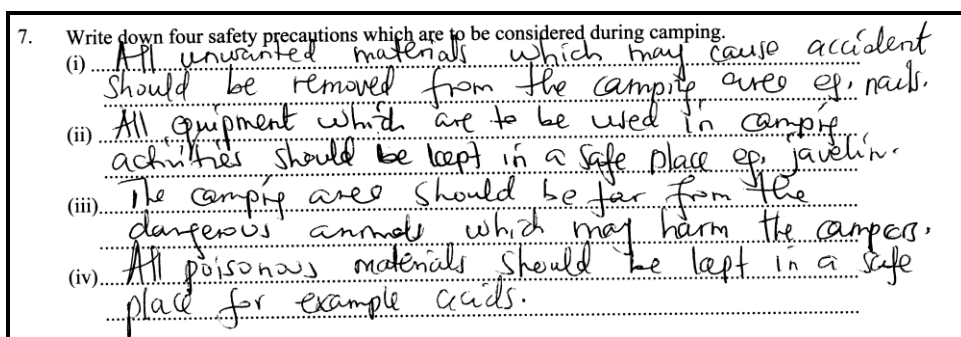 7. Write down four safety precautions which are to be considered during camping.
(i) All unwanted materials which may cause accident
should be removed from the camping area eg. nails.
(ii) All equipment which are to be used in camping
activities should be kept in a safe place eg. javelin.
(iii) The camping area should be far from the
dangerous animals which may harm the campers.
(iv) All poisonous materials should be kept in a safe
place for example acids.